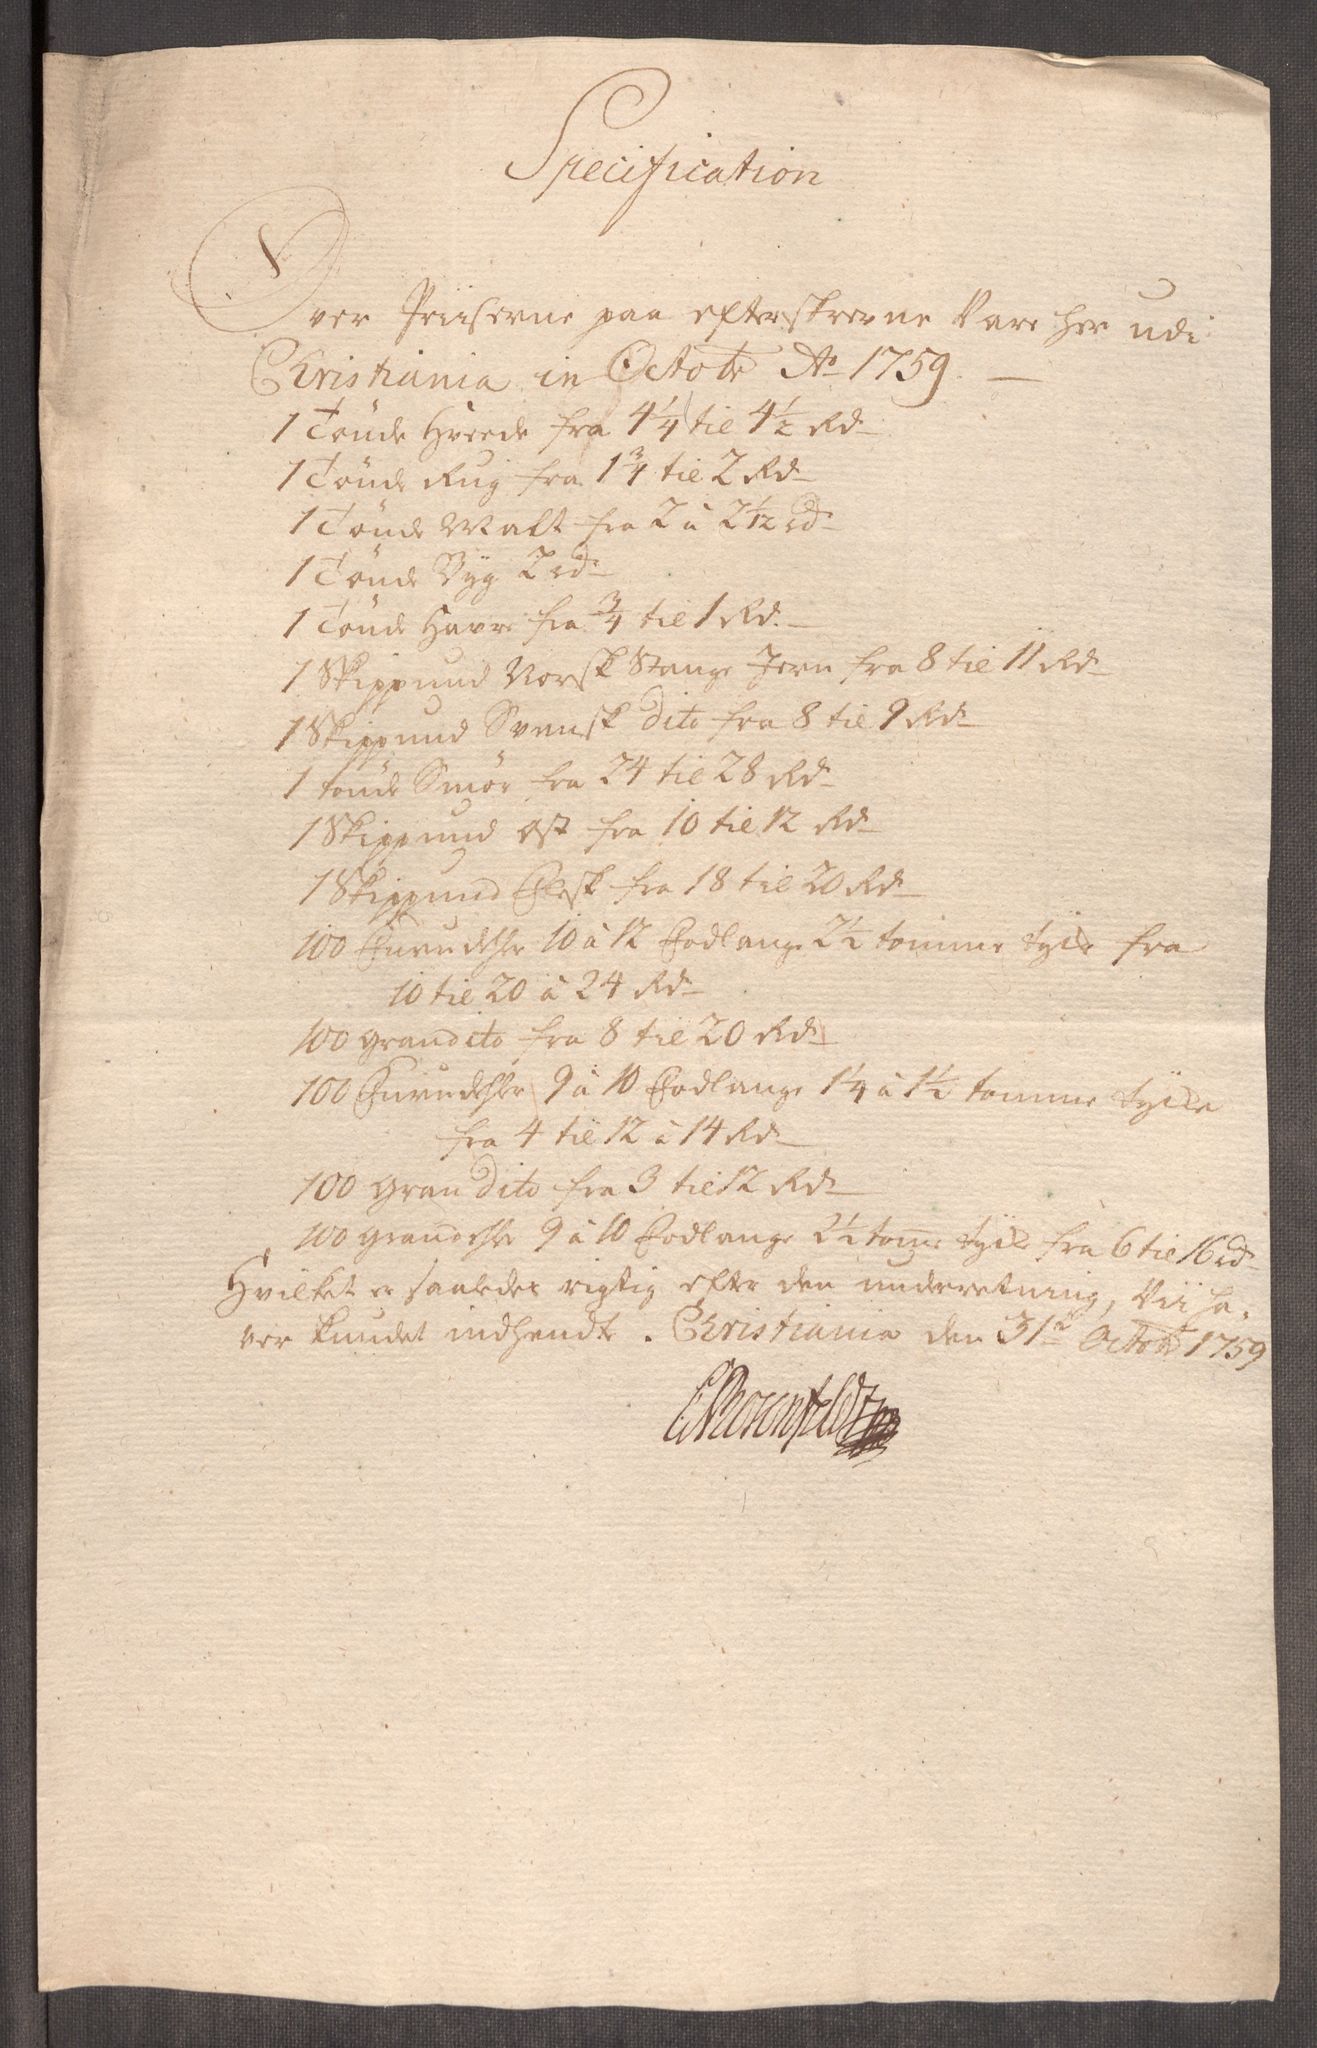 Specification
Over Priiserne paa efterskrevne Vare her udi
Christiania in Octobr Ao 1759
1 Tönde Hveede fra 4 1/4 til 4 1/2 Rd
1 Tönde Rug fra 1 3/4 til 2 Rd
1 Tönde Malt fra 2 à 2 1/2 rd
1 Tönde Byg 2 rd
1 Tönde Havre fra 3/4 til 1 Rd
1 Skippund Norsk Stange Jern fra 8 til 11 Rd
1 Skippund Svensk dito fra 8 til 9 Rd
1 tönde Smör fra 24 til 28 Rd
1 Skippund Ost fra 10 til 12 Rd
1 Skippund Flesk fra 18 til 20 Rd
100 10 à 12 Fodlange 2 1/2 tomme tycke fra
10 til 20 à 24 Rd
100 gran dito fra 8 til 20 Rd
100 9 à 10 Fodlange 1 1/4 à 1 1/2 tomme tycke
fra 4 til 12 à 14 Rd
100 gran dito fra 3 til 12 Rd
100 9 à 10 Fodlange 2 1/2 tomme tycke fra 6 til 16 rd
Hvilket er saaledes rigtig efter den underretning, Vii ha-
ver kundet indhendte. Christiania den 31te Octobr 1759